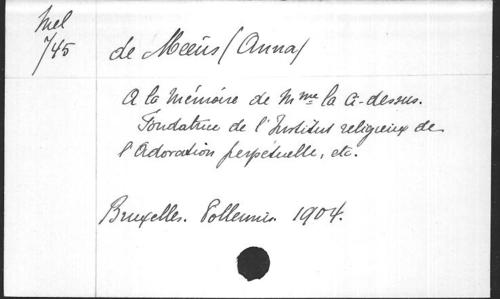 Mel
7/45
de Meeûs (Anna)
A la mémoire de Mme la ci-dessus.
Fondatrice de l'Institut religieux de
l'Adoration perpétuelle, etc.
Bruxelles. Polleunis. 1904.